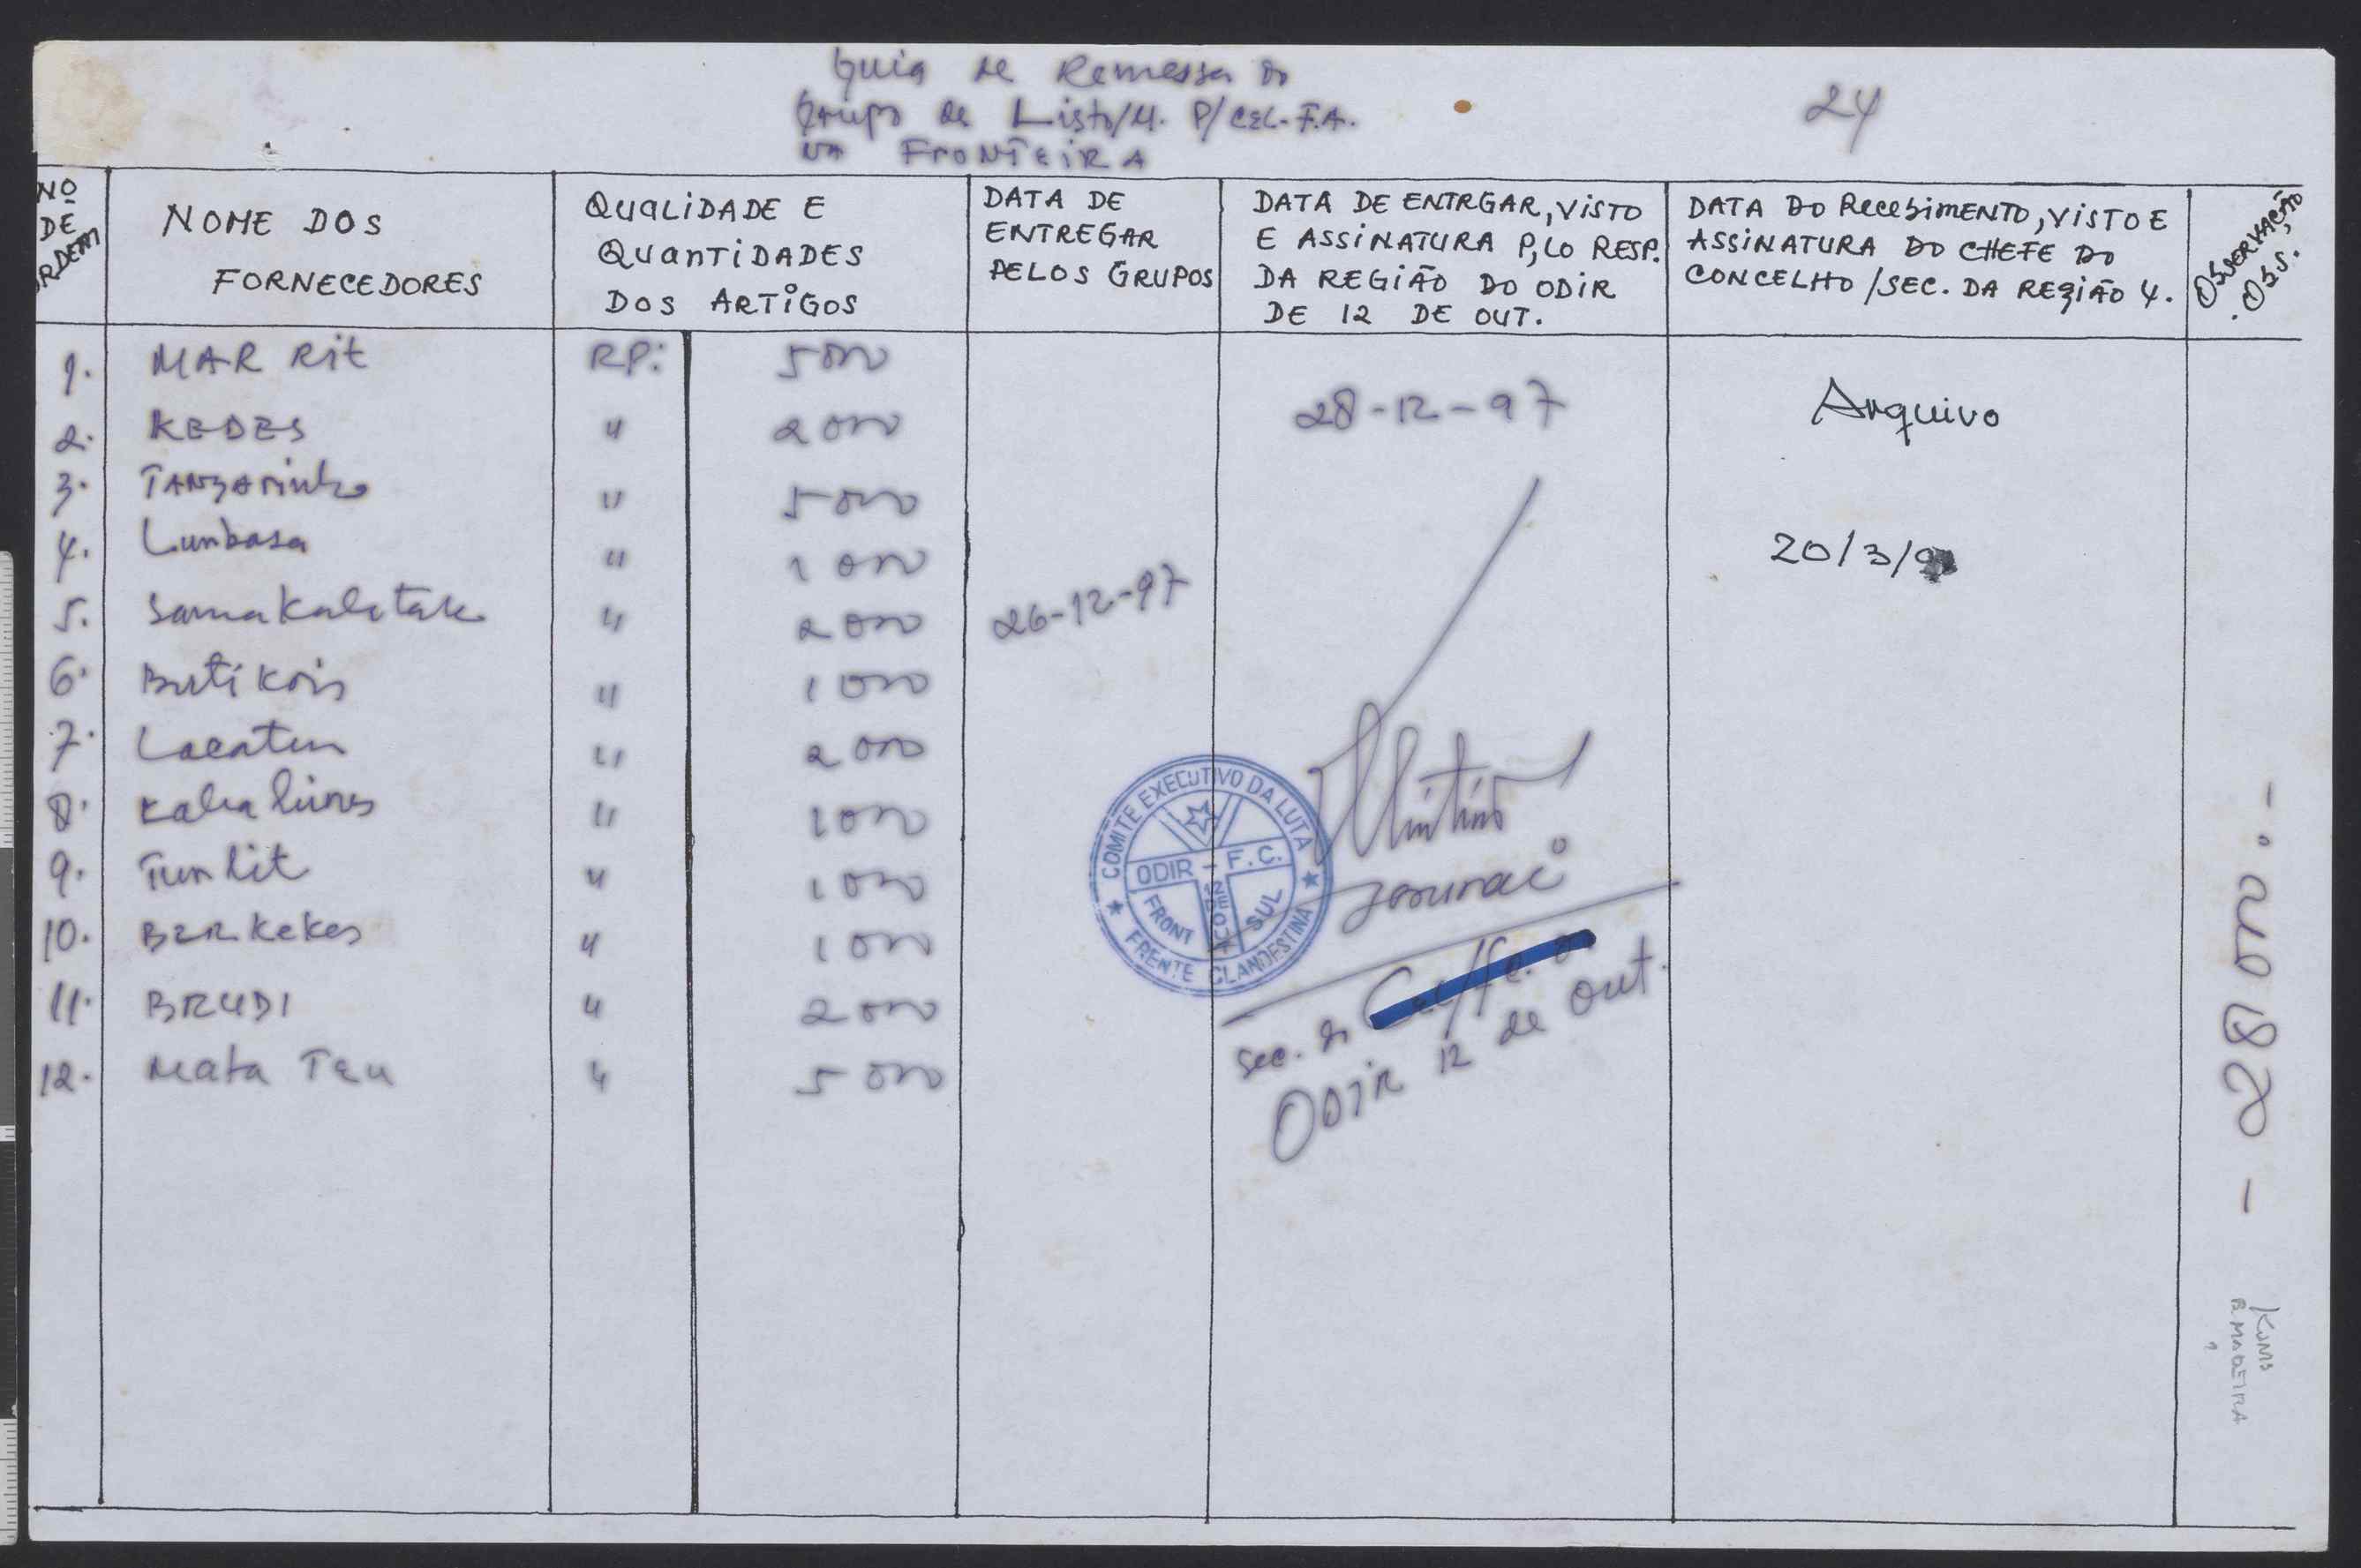 Guia de Remessa do
Grupo de Listo/M. P/CEL-F.A.
na FRONTEIRA
24
Nº DE ORDEM
NOME DOS FORNECEDORES
QUALIDADE E QUANTIDADES DOS ARTIGOS
DATA DE ENTREGAR PELOS GRUPOS
DATA DE ENTRGAR, VISTO E ASSINATURA P,LO RESP. DA REGIÃO DO ODIR DE 12 DE OUT.
DATA DO RecebiMENTO, VISTO E ASSINATURA DO CHEFE DO CONCELHO /SEC. DA REGIÃO 4.
OBSERVAÇÃO .OBS.
1. MAR Rit RP: 5000
2. KEDES " 2000
3. " 5000
4. Lumbasa " 1000
5. Samakaletak " 2000
6. Buti kois " 1000
7. Lacatun " 2000
8. " 1000
9. Tun lit " 1000
10. BERKekes " 1000
11. BRUDI " 2000
12. Mata Teu " 5000
26-12-97
28-12-97
COMITE EXECUTIVO DA LUTA
ODIR - F.C.
FRONT SUL
12 DE OUT
FRENTE CLANDESTINA
Sec. do
ODIR 12 de out.
Arquivo
20/3/9
- 28000. -
KUMS
R. MADEIRA
?